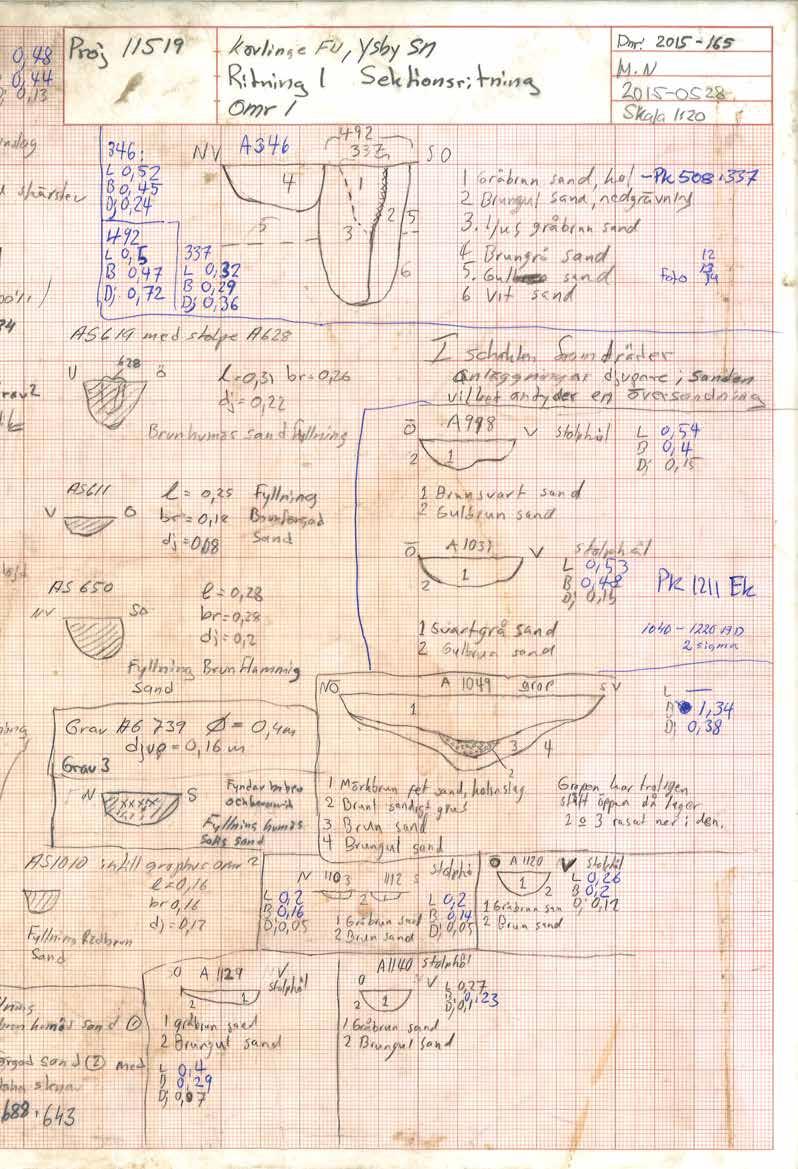 Proj 11519
Kärlinge FU, Ysby SN
Ritning 1 Sektionsritning
Omr 1
Dnr: 2015-165
M.N
2015-0528
Skala 1:20
0,48
0,44
Dj 0,13
346:
L 0,52
B 0,45
Dj 0,24
492
L 0,5
B 0,47
Dj 0,72
337
L 0,32
B 0,29
Dj 0,36
NV A346 492 SO
337
4 1 2 5
5 3
6
1 Gråbrun sand, kol -Pk 508.337
2 Brungul sand, nedgrävning
3. ljus gråbrun sand
4 Brungrå sand
5. Gul sand
6 Vit sand
Foto 12
13
14
AS619 med stolpe A628
628
Ö
l=0,31 br=0,26
dj=0,22
Brunhumös sand fyllning
I schakten framträder
anläggningar djupare i sanden
vilket antyder en översandning
Ö A998 V Stolphål
2 1
L 0,54
B 0,4
Dj 0,15
1 Brunsvart sand
2 Gulbrun sand
AS611
V Ö
l = 0,25 Fyllning
br=0,18 Brunfärgad
dj=0,08 Sand
Ö A1031 V Stolphål
2 1
L 0,53
B 0,48
Dj 0,15
Pk 1211 Ek
1040-1220 AD
2 sigma
1 Svartgrå sand
2 Gulbrun sand
AS 650
NV SO
l=0,28
br=0,28
dj=0,2
Fyllning Brunflammig
Sand
NÖ A 1049 grop SV
1
3 4
2
L —
B 1,34
Dj 0,38
1 Mörkbrun fet sand, kolinslag
2 Brunt sandigt grus
3 Brun sand
4 Brungul sand
Gropen har troligen
stått öppen då lager
2 o 3 rasat ner i den.
Grav A6 739 Ø = 0,4m
djup = 0,16 m
Grav 3
N S
xxxx
Fyllning humös
sand
AS1010 intill grophus omr 2
l=0,16
br 0,16
dj=0,17
Fyllning Rödbrun
Sand
N 1103 1112 S Stolphål
L 0,2
B 0,16
Dj 0,05
L 0,2
B 0,14
Dj 0,05
1 Gråbrun sand
2 Brun sand
A 1120 V Stolphål
1 2
L 0,26
B 0,2
Dj 0,12
1 Gråbrun san
2 Brun sand
Ö A 1129 V
Stolphål
2 1
1 gråbrun sand
2 Brungul sand
L 0,4
B 0,29
Dj 0,07
A1140 Stolphål
Ö V
2 1
L 0,27
B 0,23
Dj 0,1
1 Gråbrun sand
2 Brungul sand
brun humös sand ①
sand ② med
688.643